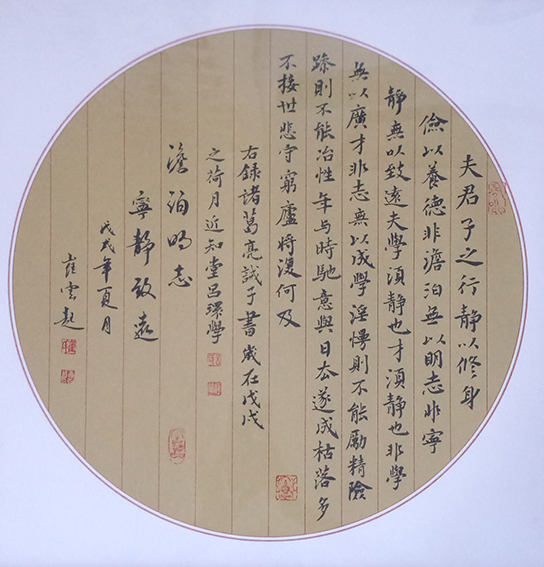 夫君子之行静以修身
儉以養德非澹泊無以明志非寧
静無以致遠夫學須静也才須静也非學
無以廣才非志無以成學淫慢則不能勵精險
躁則不能冶性年与時馳意與日去遂成枯落多
不接世悲守窮廬將復何及
右録諸葛亮誡子書歲在戊戌
之荷月近知堂吕環學
澹泊明志
寧静致遠
戊戌年夏月
崔雲起